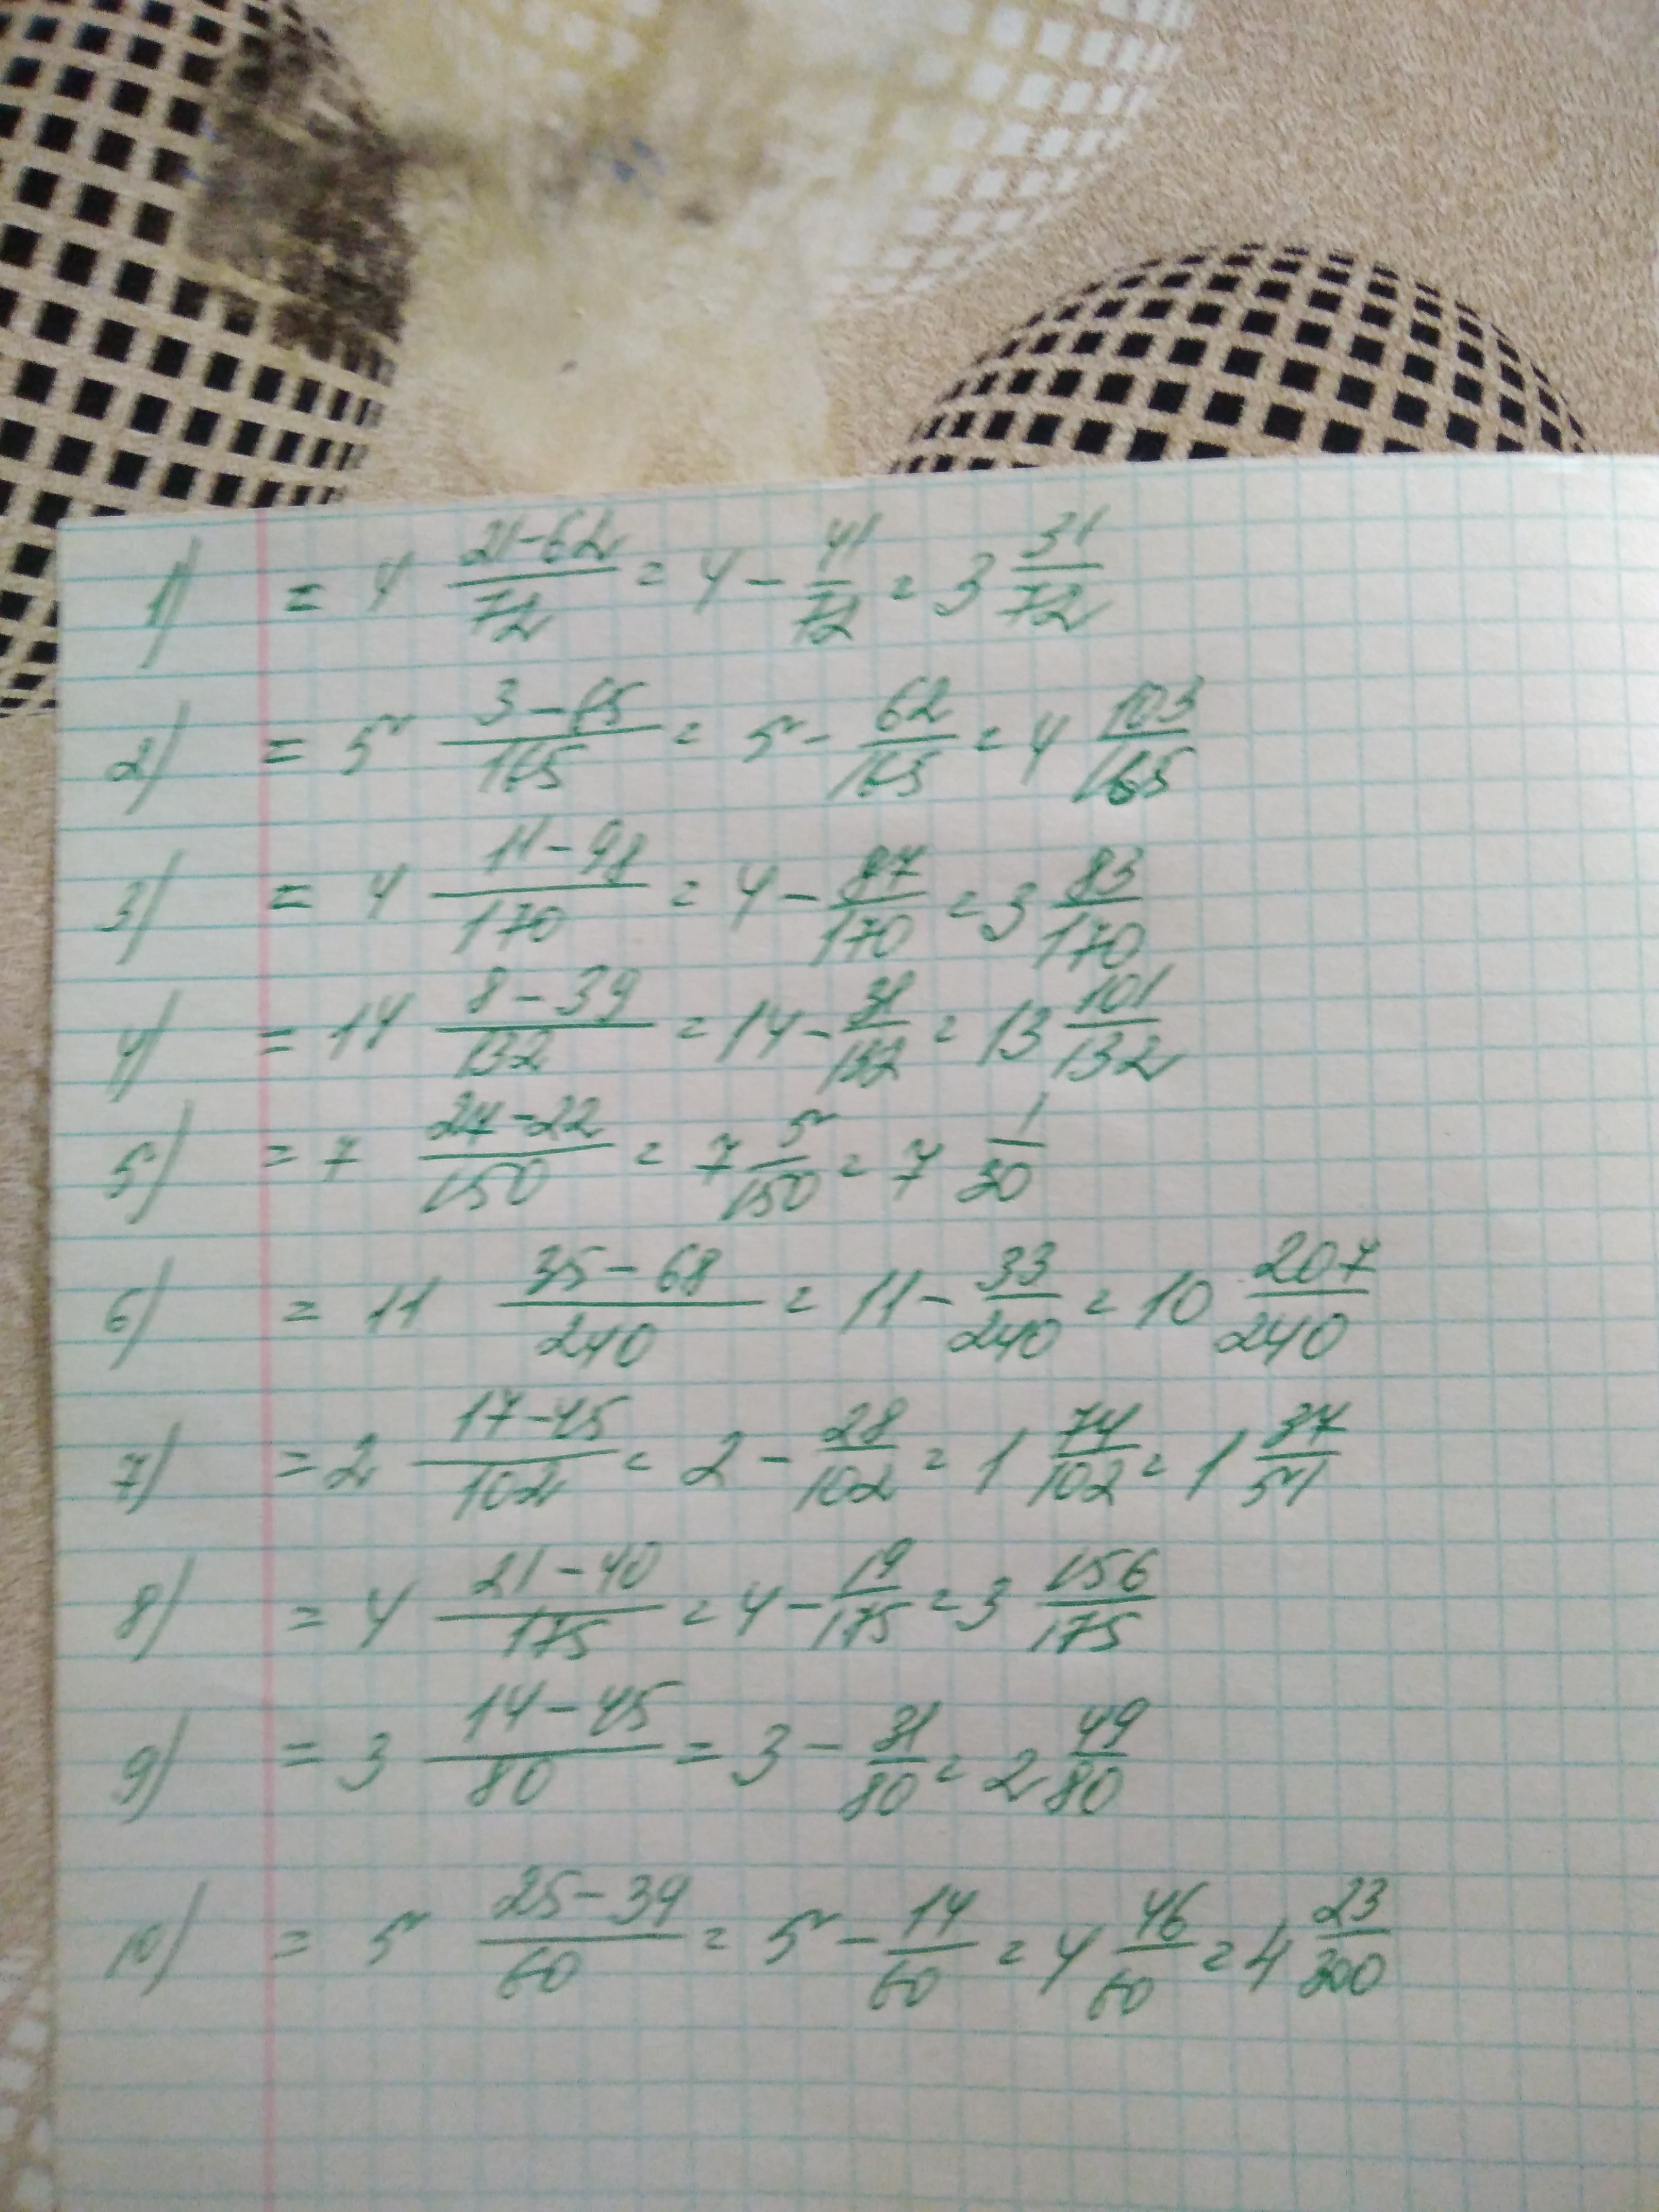 1) = 4 21-62/72 = 4 - 41/72 = 3 31/72
2) = 5 3-65/165 = 5 - 62/165 = 4 103/165
3) = 4 11-98/170 = 4 - 87/170 = 3 83/170
4) = 14 8-39/132 = 14 - 31/132 = 13 101/132
5) = 7 27-22/150 = 7 5/150 = 7 1/30
6) = 11 35-68/240 = 11 - 33/240 = 10 207/240
7) = 2 17-45/102 = 2 - 28/102 = 1 74/102 = 1 37/51
8) = 4 21-40/175 = 4 - 19/175 = 3 156/175
9) = 3 14-45/80 = 3 - 31/80 = 2 49/80
10) = 5 25-39/60 = 5 - 14/60 = 4 46/60 = 4 23/300